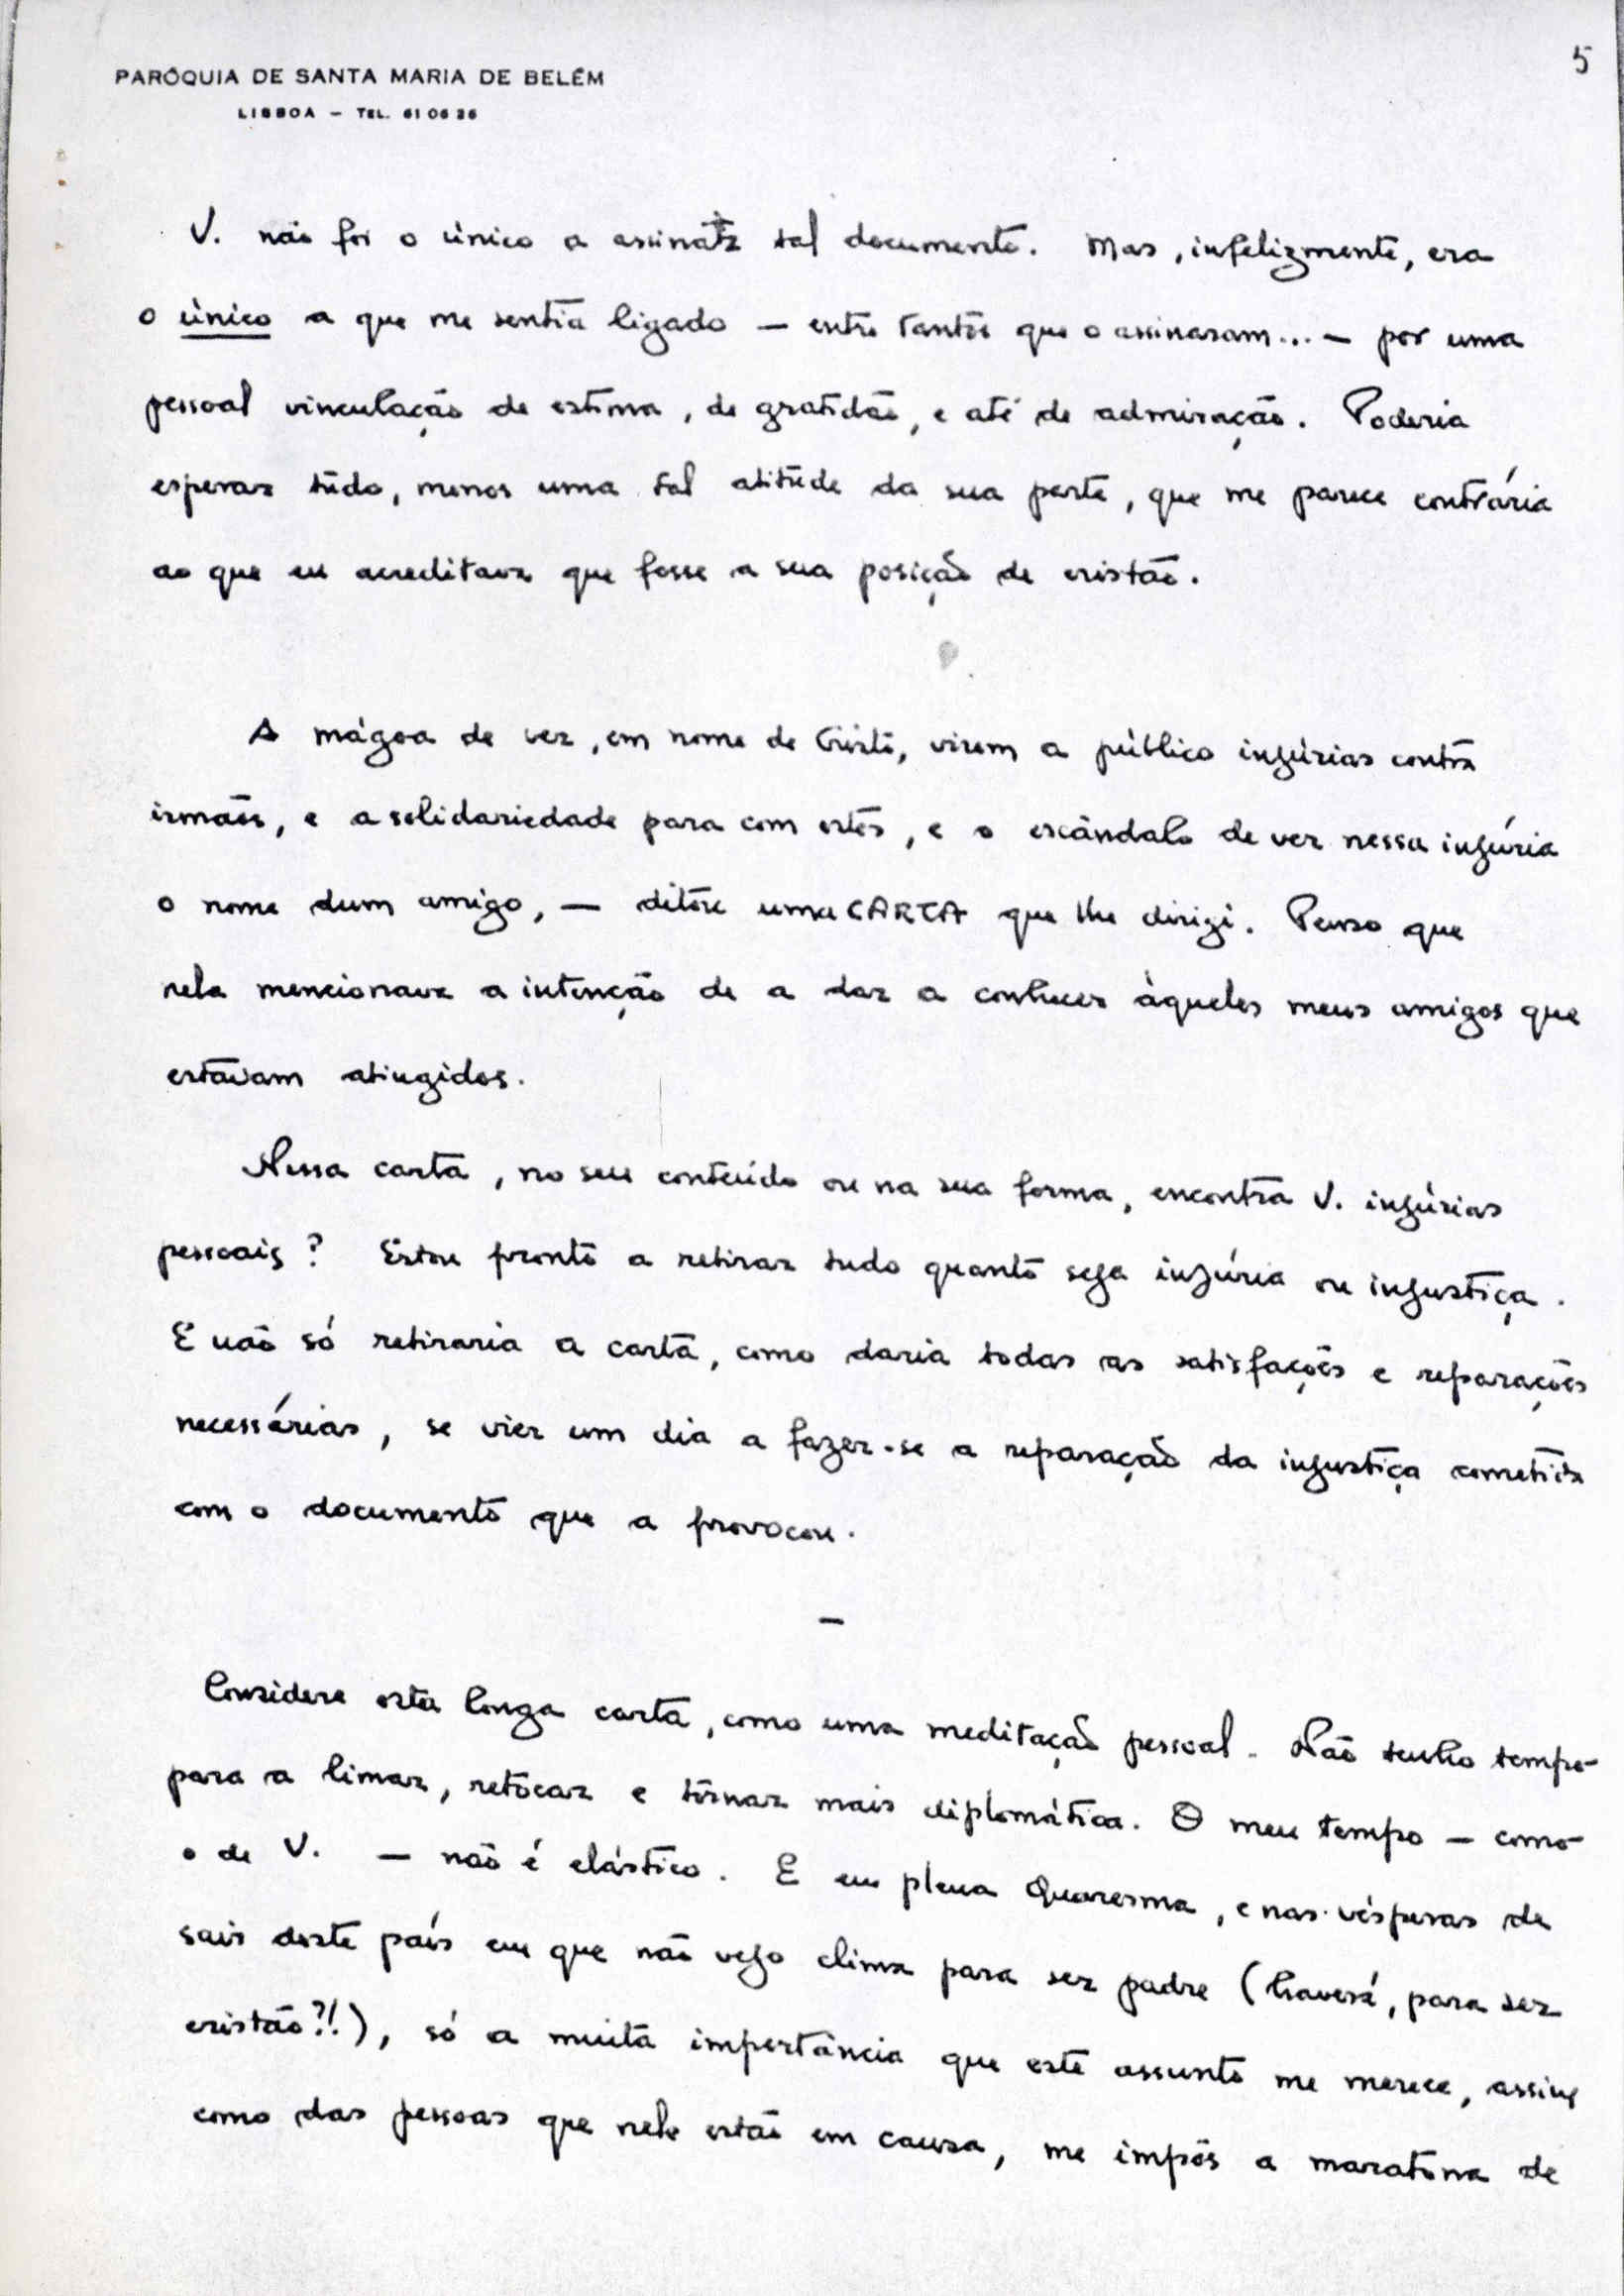 5
PARÓQUIA DE SANTA MARIA DE BELÉM
LISBOA — TEL. 61 06 26
V. não foi o único a assinar tal documento. Mas, infelizmente, era
o único a que me sentia ligado — entre tantos que o assinaram... — por uma
pessoal vinculação de estima, de gratidão, e até de admiração. Poderia
esperar tudo, menos uma tal atitude da sua parte, que me parece contrária
ao que eu acreditava que fosse a sua posição de cristão.
A mágoa de ver, em nome de Cristo, virem a público injúrias contra
irmãos, e a solidariedade para com estes, e o escândalo de ver nessa injúria
o nome dum amigo, — ditou uma CARTA que lhe dirigi. Penso que
nela mencionava a intenção de a dar a conhecer àqueles meus amigos que
estavam atingidos.
Nessa carta, no seu conteúdo ou na sua forma, encontra V. injúrias
pessoais? Estou pronto a retirar tudo quanto seja injúria ou injustiça.
E não só retiraria a carta, como daria todas as satisfações e reparações
necessárias, se vier um dia a fazer-se a reparação da injustiça cometida
com o documento que a provocou.
—
Considere esta longa carta, como uma meditação pessoal. Não tenho tempo
para a limar, retocar e tornar mais diplomática. O meu tempo — como
o de V. — não é elástico. E em plena Quaresma, e nas vésperas de
sair deste país em que não vejo clima para ser padre (haverá, para ser
cristão?!), só a muita importância que este assunto me merece, assim
como das pessoas que nele estão em causa, me impôs a maratona de